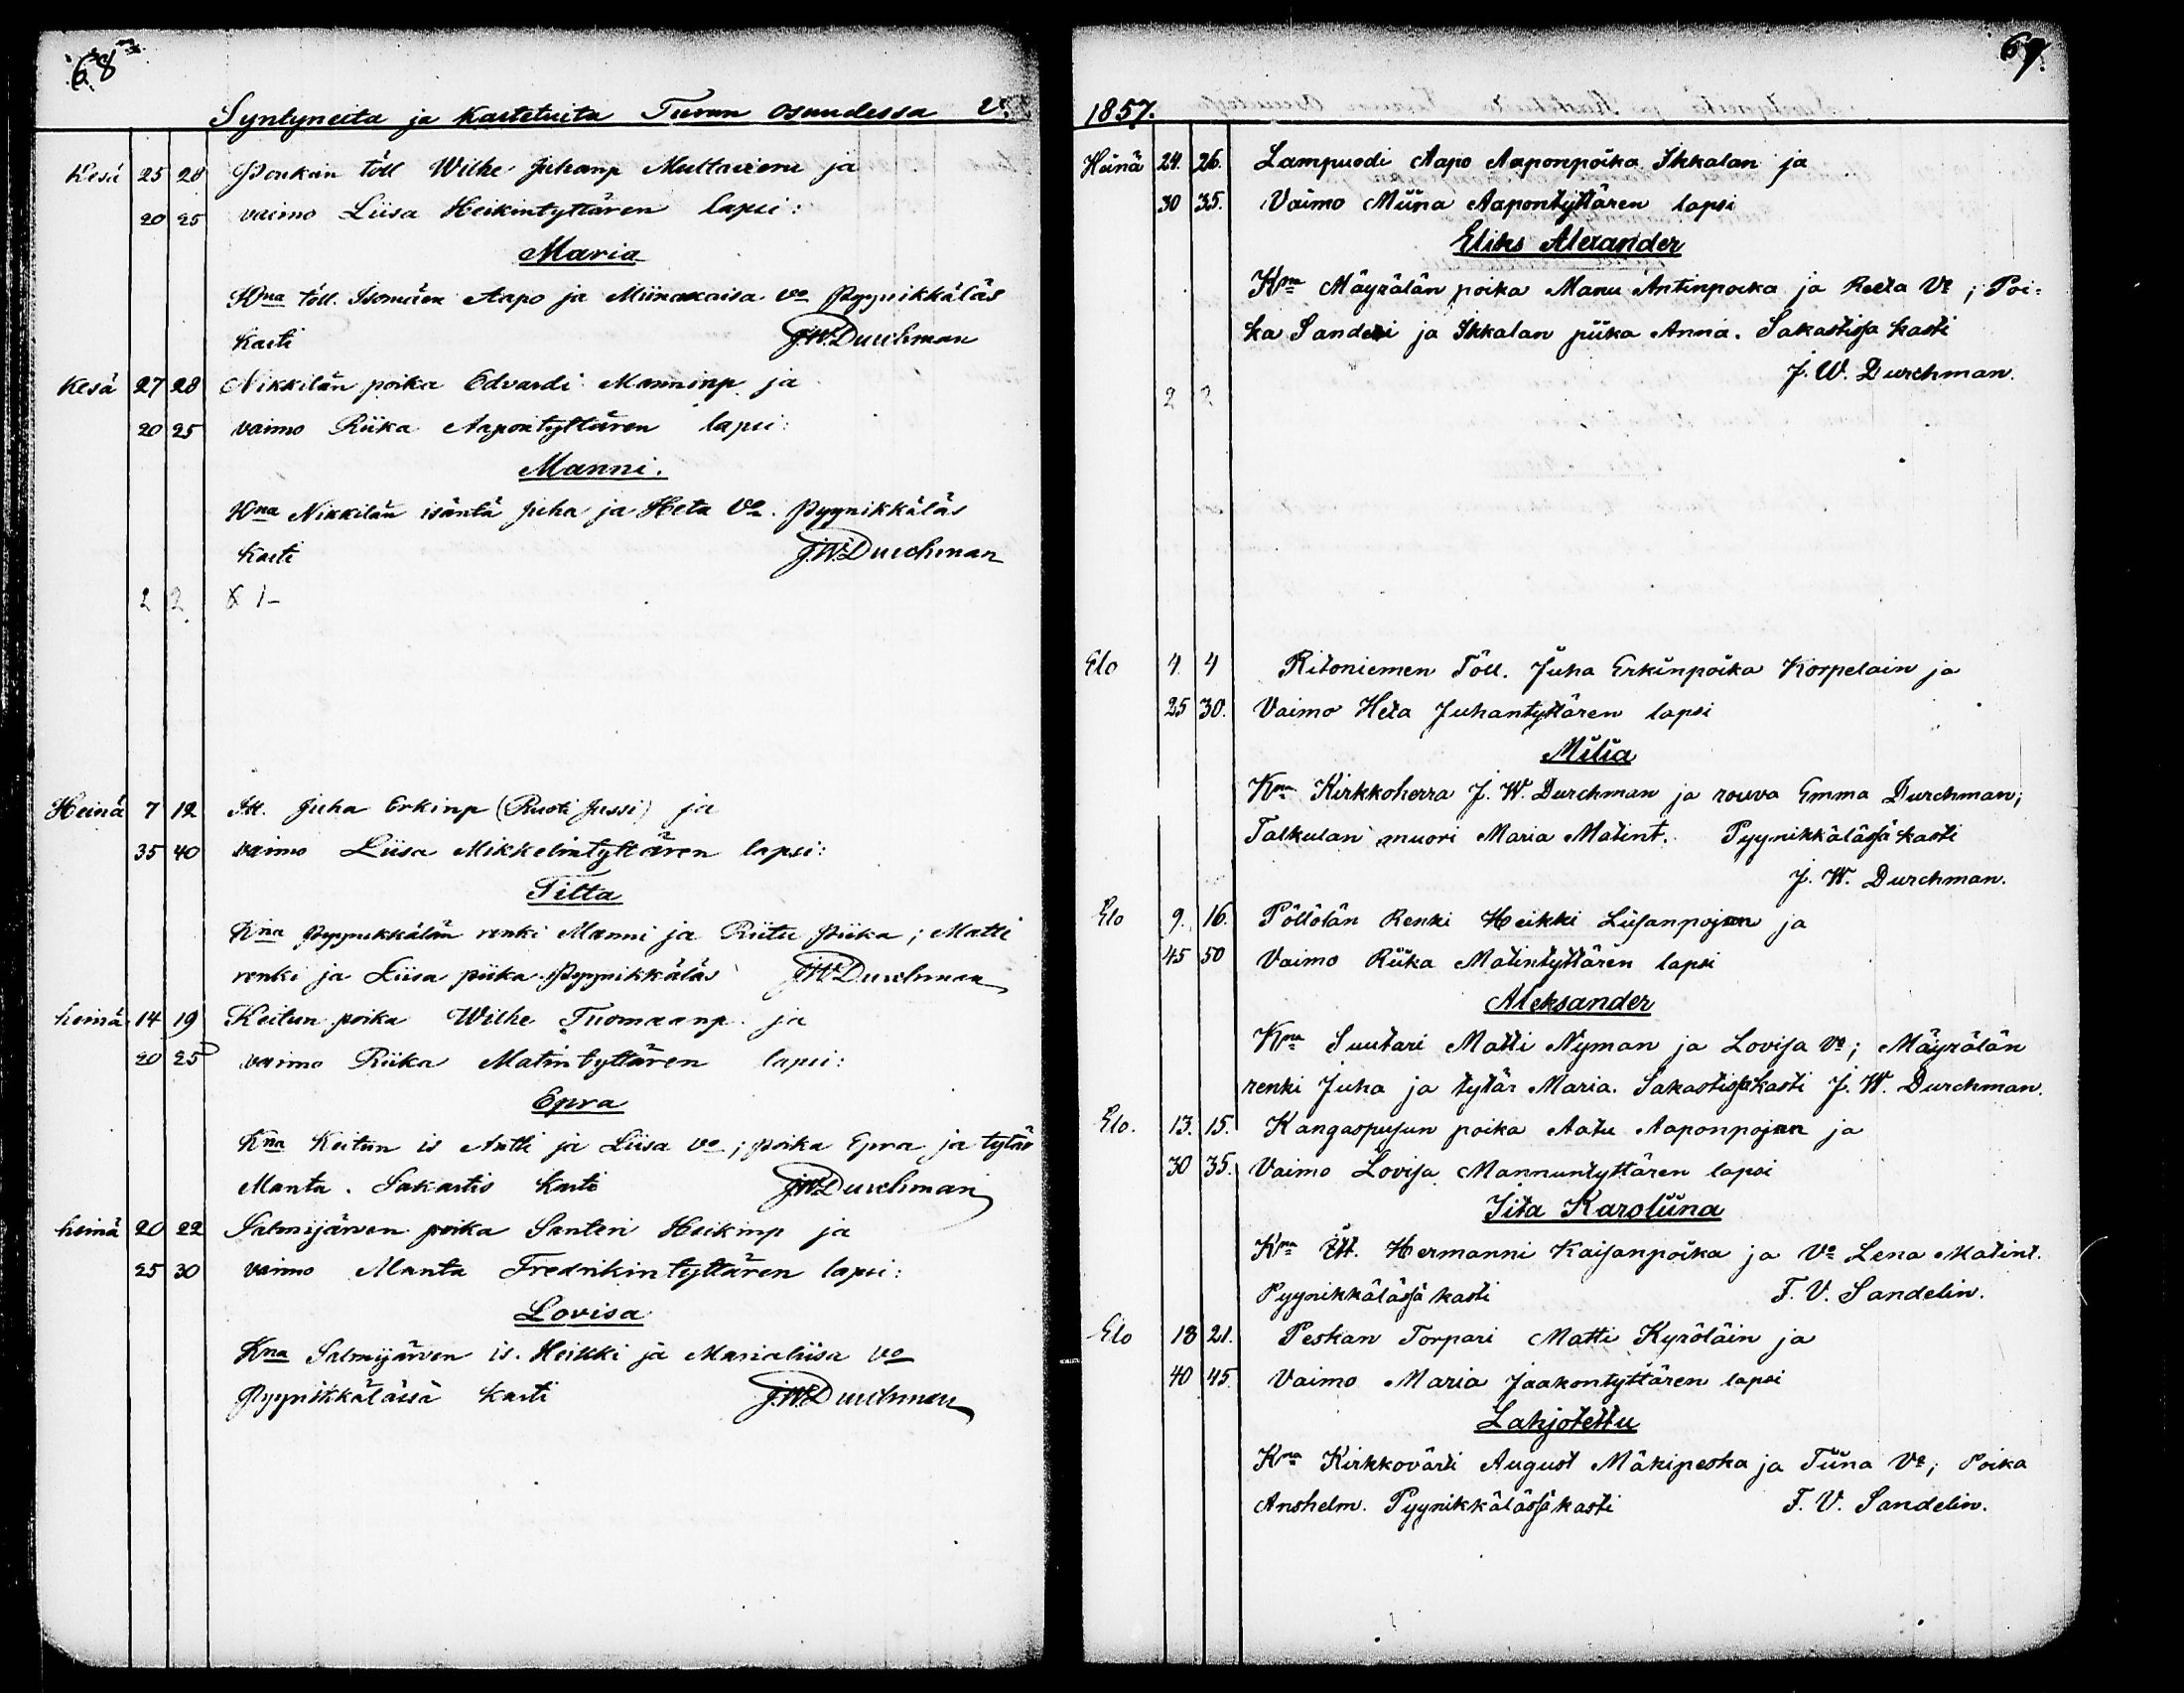 68
Syntyneita ja Kastetuita Turun osuudessa V.
Kesä 25 28 Penkan töll Wilhe Juhanp Multaniemi ja
20 25 vaimo Liisa Heikintyttären lapsi:
Maria
Kna töll. Isomäen Aapo ja Miinakaisa vo Pyynikkäläs
Kasti J.W.Durchman
Kesä 27 28 Nikkilän poika Edvardi Manninp ja
20 25 vaimo Riika Aapontyttären lapsi:
Manni.
Kna Nikkilän isäntä Juha ja Heta Vo. Pyynikkäläs
Kasti J.W.Durchman
2 2
Heinä 7 12 Itt. Juha Erkinp (Ruoti Jussi) ja
35 40 vaimo Liisa Mikkelintyttären lapsi:
Tilta
Kna Pyynikkälän renki Manni ja Riitu Piika; Matti
renki ja Liisa piika. Pyynikkäläs J.W.Durchman
heinä 14 19 Keitun poika Wilhe Tuomaanp. ja
20 25 vaimo Riika Matintyttären lapsi:
Epra
Kna Keitun is Antti ja Liisa vo; poika Epra ja tytär
Manta. Sakastis Kasti J.W.Durchman
heinä 20 22 Salmijärven poika Santeri Heikinp ja
25 30 vaimo Manta Fredrikintyttären lapsi:
Lovisa
Kna Salmijärven is. Heikki ja Marialiisa vo
Pyynikkälässä kasti J.W.Durchman
69.
1857.
Heinä 24. 26. Lampuodi Aapo Aaponpoika Ikkalan ja
30 35. Vaimo Miina Aapontyttären lapsi
Eliks Alexander
Kna Mäyrälän poika Manu Antinpoika ja Reeta Vo; Poi-
ka Sanderi ja Ikkalan piika Anna. Sakastissa kasti
J. W. Durchman.
2 2
Elo 4. 4 Ritoniemen Töll. Juha Erkinpoika Korpelain ja
25 30. Vaimo Heta Juhantyttären lapsi
Milia
Kna Kirkkoherra J. W. Durchman ja rouva Emma Durchman;
Talkulan muori Maria Matint. Pyynikkälässä kasti
J. W. Durchman.
Elo 9. 16. Pöllölän Renki Heikki Liisanpojan ja
45 50 Vaimo Riika Matintyttären lapsi
Aleksander
Kna Suutari Matti Nyman ja Lovisa vo; Mäyrälän
renki Juha ja tytär Maria. Sakastissa kasti J. W. Durchman.
Elo. 13. 15. Kangaspusun poika Aatu Aaponpojan ja
30 35. Vaimo Lovisa Mannuntyttären lapsi
Iita Karoliina
Kna Itt. Hermanni Kaisanpoika ja Vo Lena Matint.
Pyynikkälässä kasti F. V. Sandelin.
Elo 18 21. Peskan Torpari Matti Kyröläin ja
40 45. Vaimo Maria Jaakontyttären lapsi
Lahjotettu
Kna Kirkkovärti August Mäkipeska ja Tiina Vo; Poika
Anshelm. Pyynikkälässä kasti F. V. Sandelin.